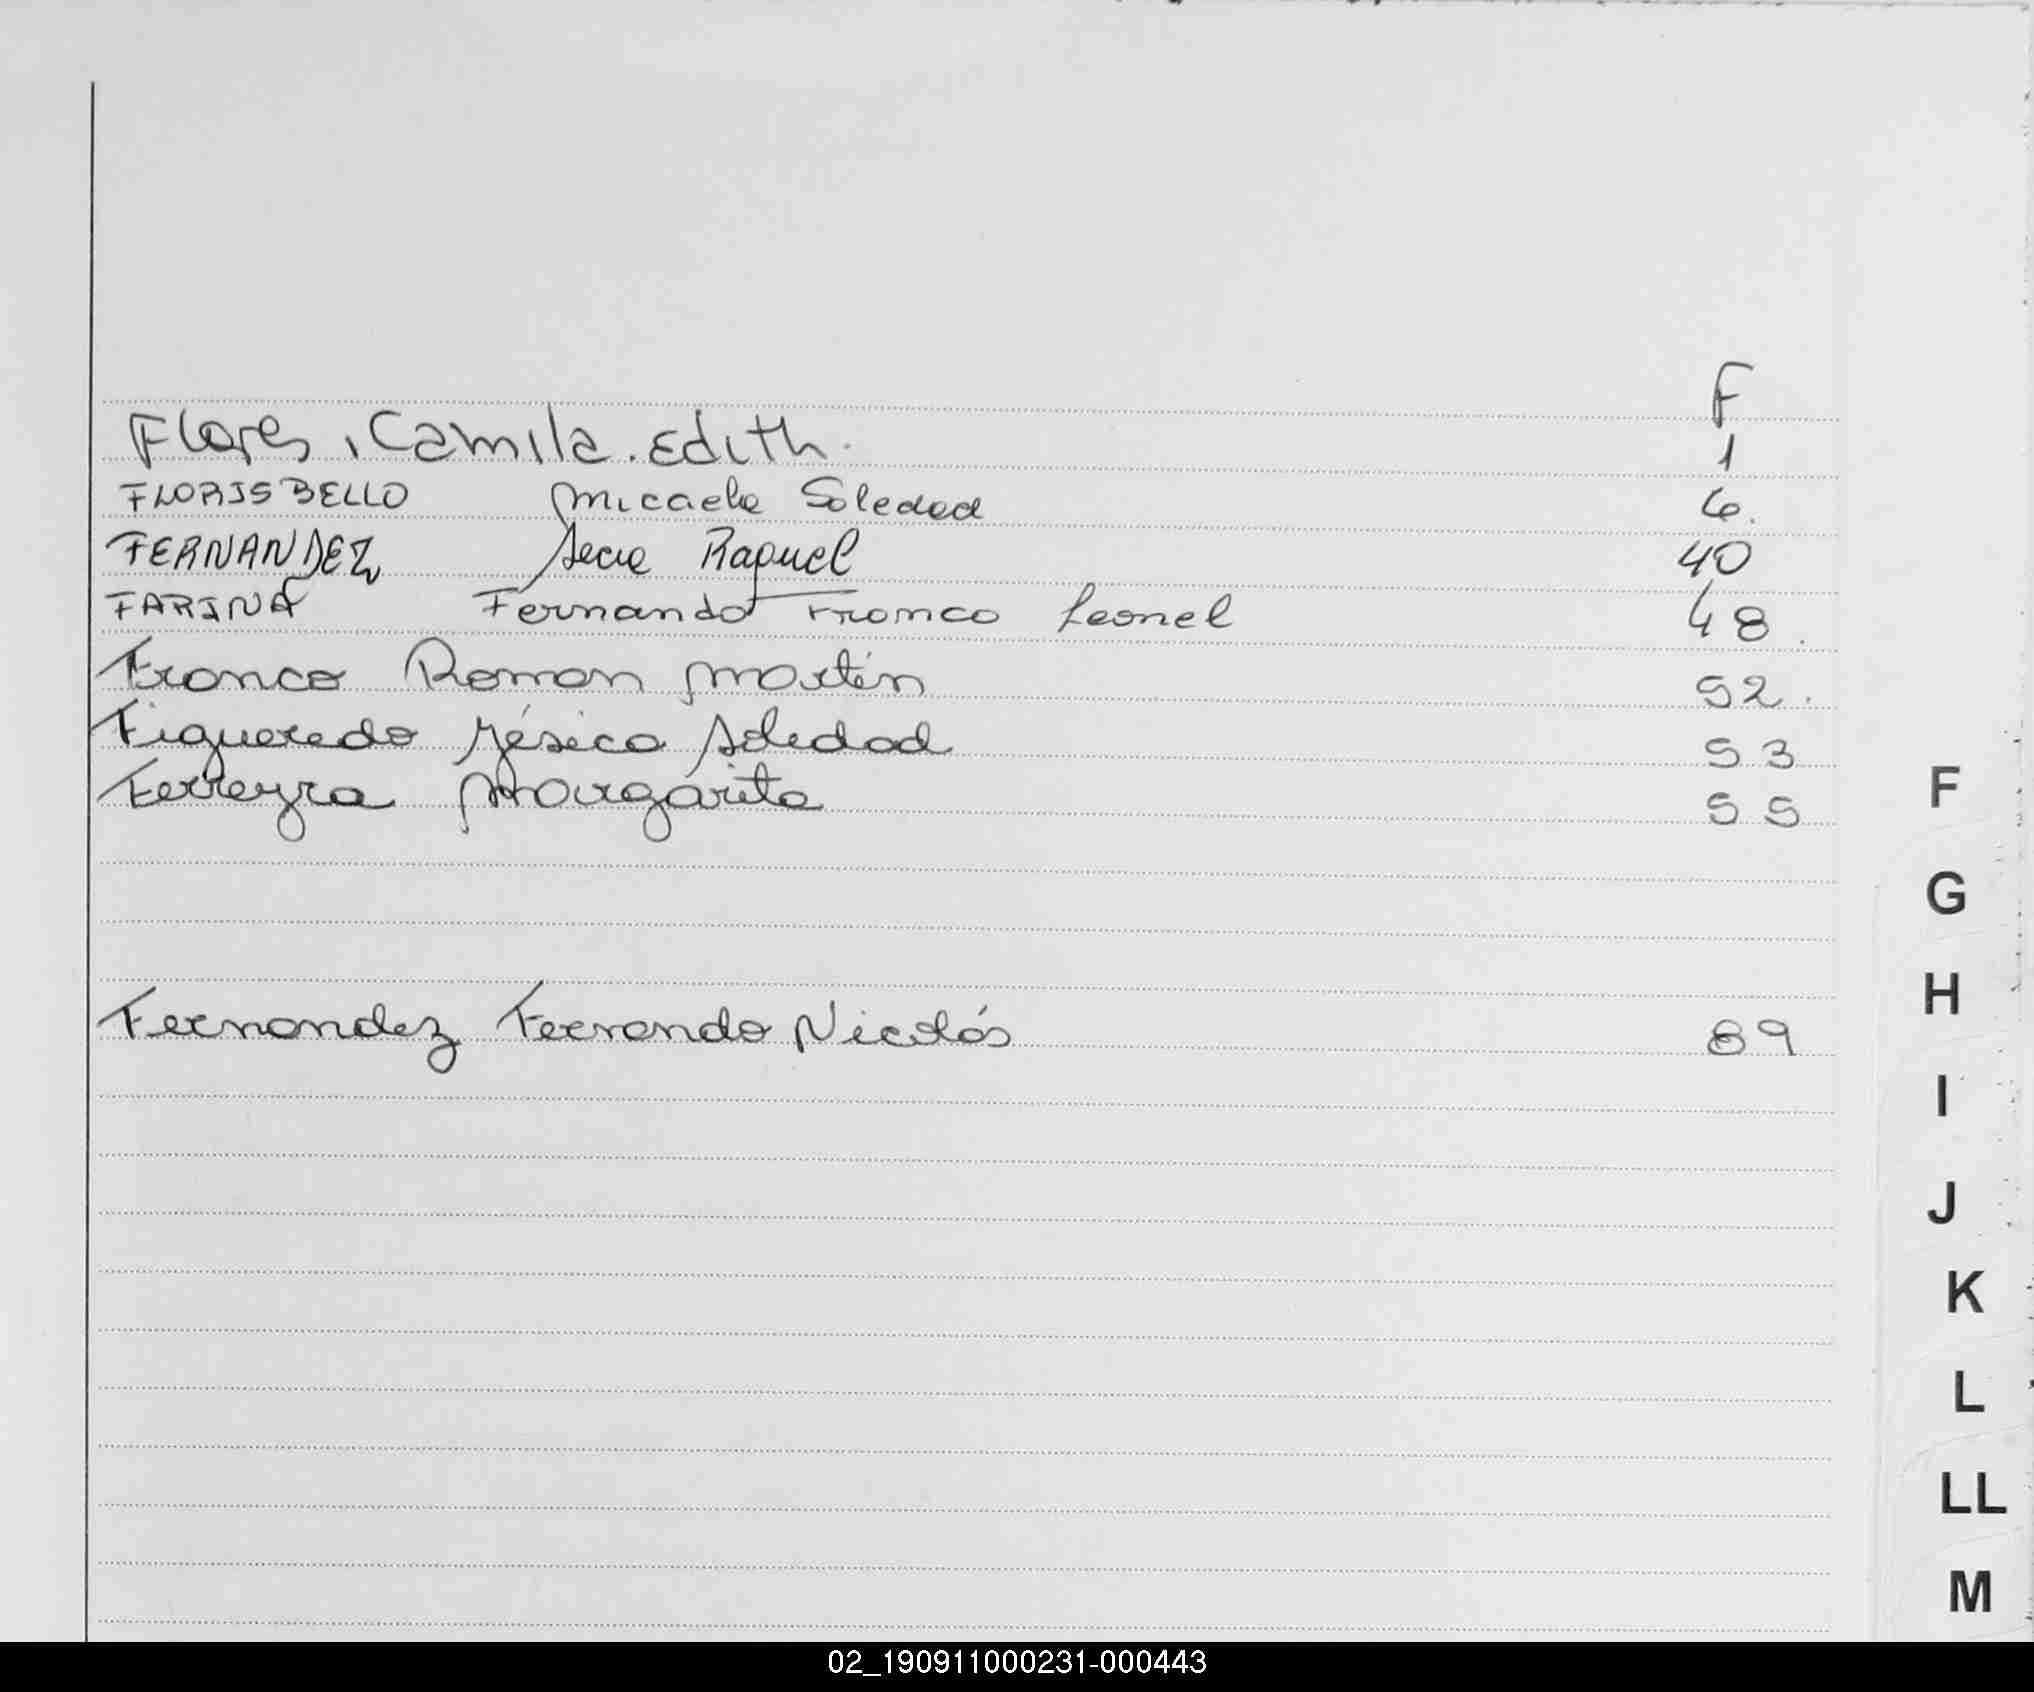 F
Flores, Camila Edith. 1
FLORISBELLO Micaela Soledad 6.
FERNANDEZ Raquel 40
FARINA Fernando Franco Leonel 48.
Franco Roman Martín 52.
Figueredo Yésica Soledad 53
Ferreyra Margarita 55
Fernandez Fernando Nicolás 89
F
G
H
I
J
K
L
LL
M
02_190911000231-000443